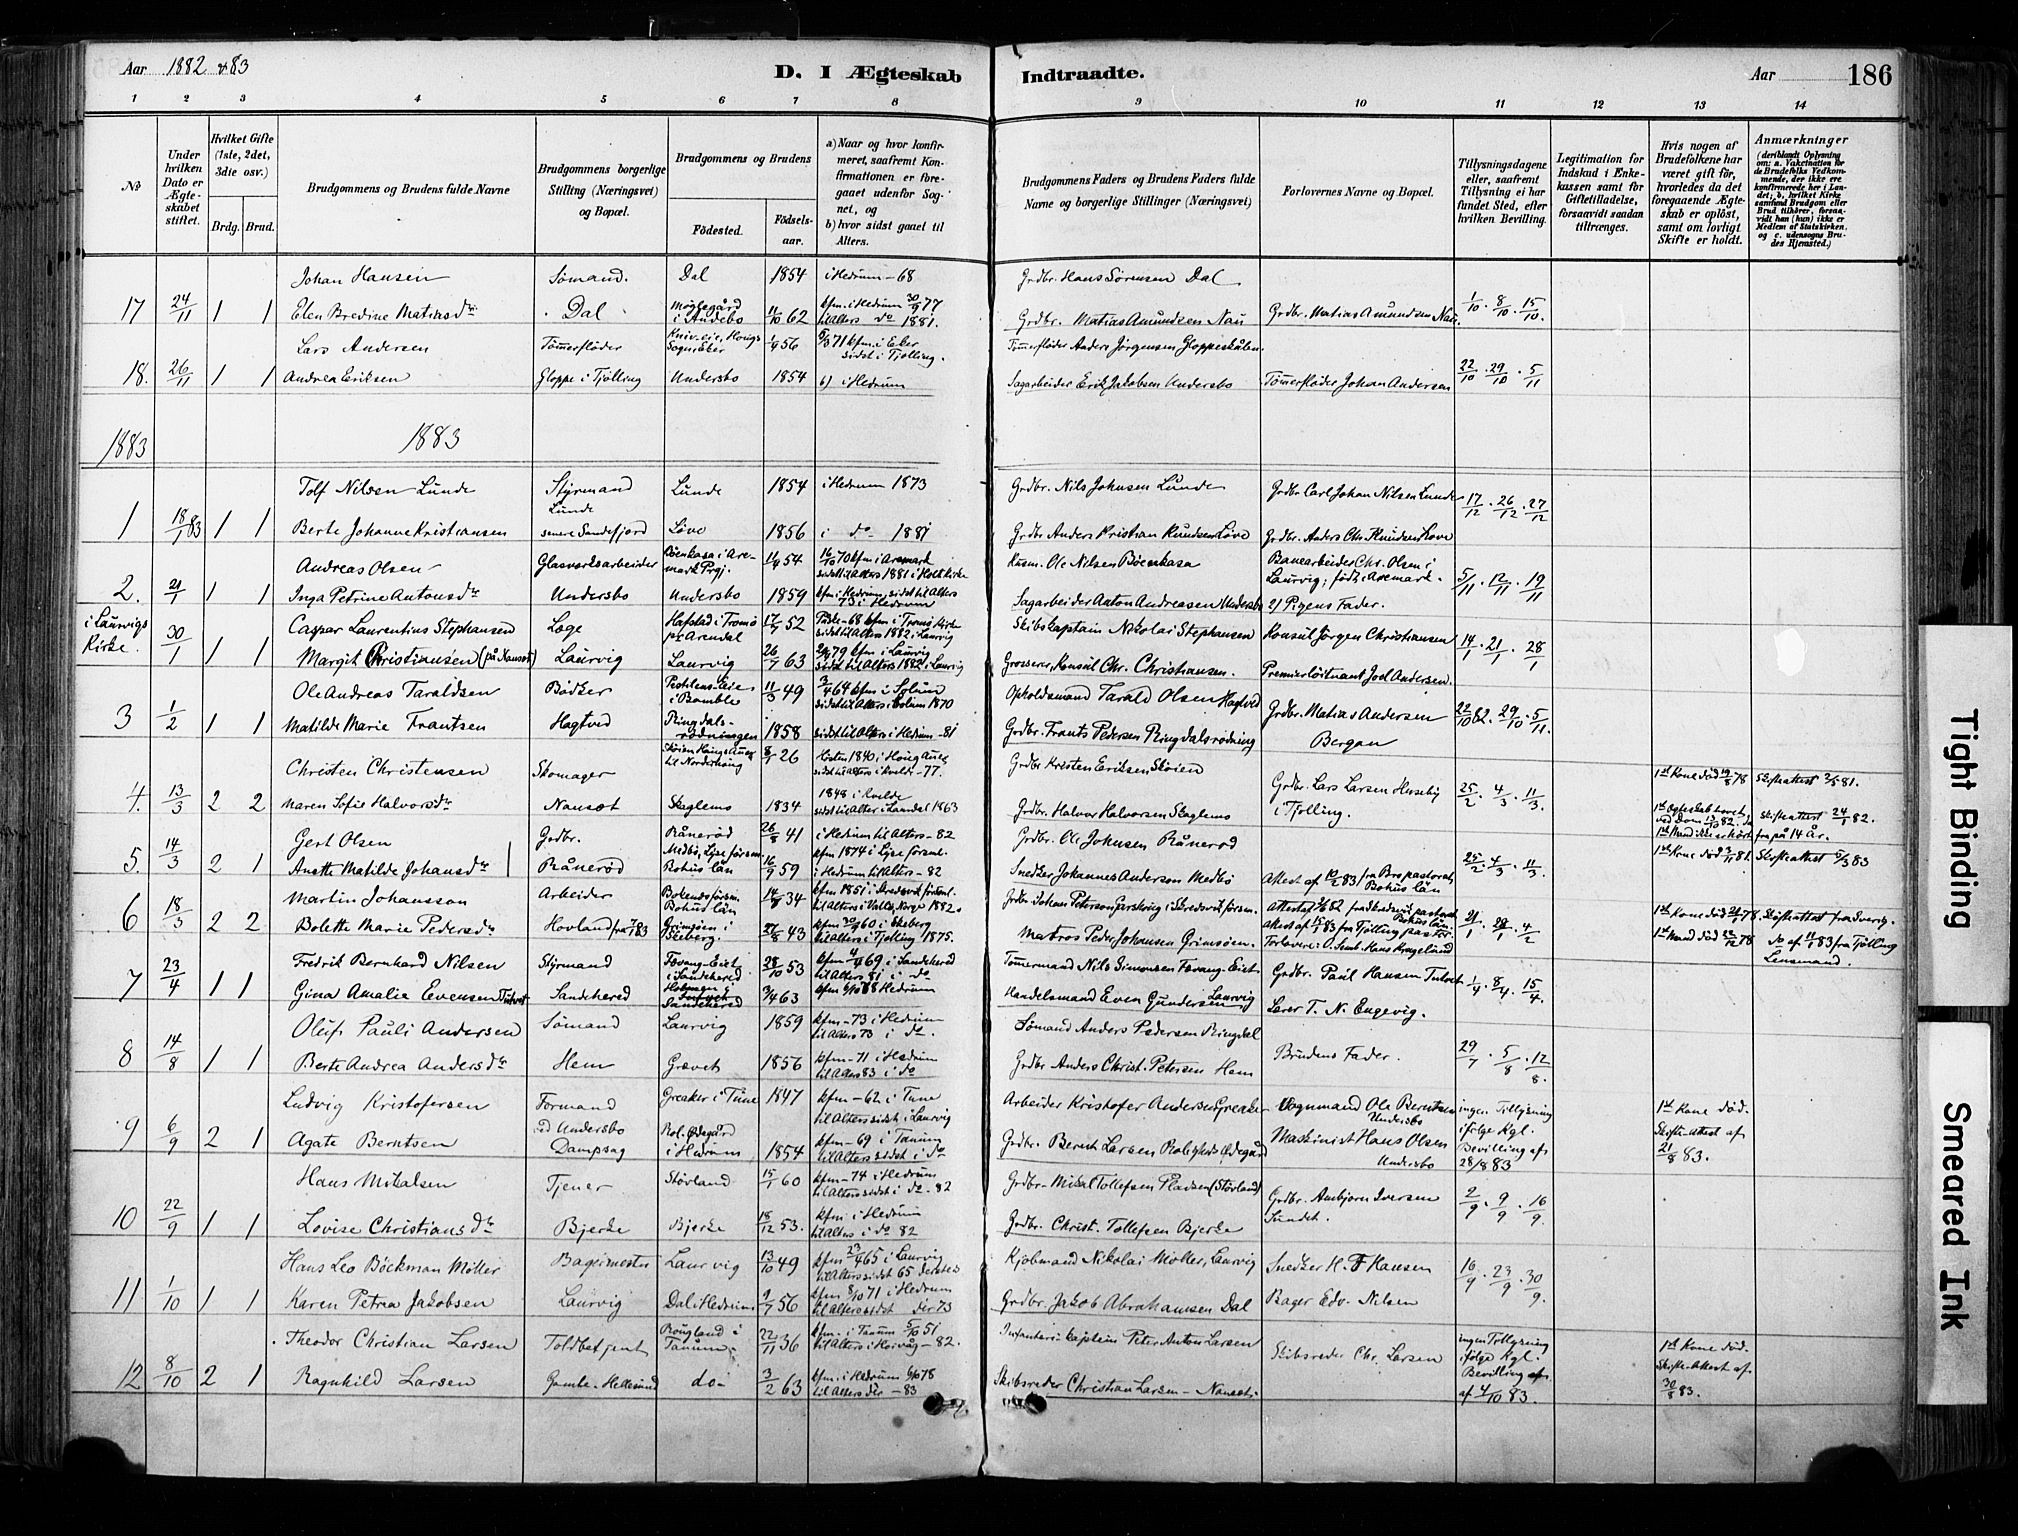 Aar 1882 & 83
D. I Ægteskab Indtraadte.
Aar 186
1 2 3 4 5 6 7 8 9 10 11 12 13 14
No
Under hvilken Dato er Ægteskabet stiftet.
Hvilket Gifte (1ste, 2det, 3die osv.)
Brdg. Brud.
Brudgommens og Brudens fulde Navne
Brudgommens borgerlige Stilling (Næringsvei) og Bopæl.
Brudgommens og Brudens
Fødested.
Fødselsaar.
a) Naar og hvor konfirmeret, saafremt Konfirmationen er foregaaet udenfor Sognet, og
b) hvor sidst gaaet til Alters.
Brudgommens Faders og Brudens Faders fulde Navne og borgerlige Stillinger (Næringsvei)
Forlovernes Navne og Bopæl.
Tillysningsdagene eller, saafremt Tillysning ei har fundet Sted, efter hvilken Bevilling.
Legitimation for Indskud i Enkekassen samt for Giftetilladelse, forsaavidt saadan tiltrænges.
Hvis nogen af Brudefolkene har været gift før, hvorledes da det foregaaende Ægteskab er opløst, samt om lovligt Skifte er holdt.
Anmærkninger
(deriblandt Oplysning om: a. Vakcination for de Brudefolks Vedkommende, der ikke ere konfirmerede her i Landet; b. hvilket Kirkesamfund Brudgom eller Brud tilhører, forsaavidt han (hun) ikke er Medlem af Statskirken. og c. udensogns Brudes Hjemsted.)
Johan Hansen Sømand. Dal 1854 i Hedrum - 68 Grdbr. Hans Sørensen Dal
17 24/11 1 1 Elen Bredine Matiasdtr Dal Møglegård i Andebo 11/10 62 kfm. i Hedrum 30/9 77 til Alters do 1881. Grdbr. Matias Amundsen Nau Grdbr. Matias Amundsen Nau. 1/10 . 8/10 . 15/10.
Lars Andersen Tømmerfløder 56 71 kfm. i Eker sidst i Tjølling. Tømmerfløder Anders Jørgensen Gloppeskålen
18. 26/11 1 1 Andrea Eriksen Gloppe i Tjølling Undersbo 1854 b) i Hedrum Sagarbeider Erik Jakobsen Undersbo Tømmerfløder Johan Andersen 22/10 . 29/10 . 5/11
1883 1883
Tolf Nilsen Lunde Styrmand Lunde 1854 i Hedrum 1873 Grdbr. Nils Johnsen Lunde Grdbr Carl Johan Nilsen Lunde
1 18/1 83 1 1 Berte Johanne Kristiansen Lunde senere Sandefjord Løve 1856 i do 1881 Grdbr Anders Kristian Knudsen Løve Grdbr. Anders Chr. Knudsen Løve 17/12 . 26/12 . 27/12
Andreas Olsen Glasverksarbeider Bøenkasa i Aremark Prgj. 11/9 54 16/10 70 kfm i Aremark sidst til Alters 1881 i Holt Kirke Husm. Ole Nilsen Bøenkasa Banearbeider Chr. Olsen i Laurvig; født i Aremark.
2. 21/1 1 1 Inga Petrine Antonsdtr Undersbo Undersbo 1859 kfm i Hedrum, sidst til Alters 73 i Hedrum Sagarbeider Anton Andreasen Undersbo 2) Pigens Fader. 5/11 . 12/11 . 19/11
i Laurvigs Kirke. 30/1 1 1 Caspar Laurentius Stephansen Læge Hafstad i Tromø pr. Arendal 17/7 52 Påske - 68 kfm i Tromø Kirke sidst til Alters 1882 i Laurvig Skibskaptain Nikolai Stephansen Konsul Jørgen Christiansen 14/1 . 21/1 . 28/1
Margit Christiansen (på Nanset) Laurvig Laurvig 26/7 63 79 kfm i Laurvig sidst til Alters 1882 i Laurvig Grosserer, Konsul Chr. Christiansen. Premierløitnant Joel Andersen.
Ole Andreas Taraldsen Bødker i Bamble 11/3 49 3/4 64 kfm i Solum sidst til Alters i Solum 1870 Opholdsmand Tarald Olsen Hagtved
3 1/2 1 1 Matilde Marie Frantsen Hagtved Ringdalsrødningen 1858 sidst til Alters i Hedrum - 81 Grdbr. Frants Pedersen Ringdalsrødning Grdbr. Matias Andersen Bergan 22/10 82 . 29/10 . 5/11.
Christen Christensen Skomager til Norderhaug 8/7 26 Høsten 1840 i Houg Annex sidst til Alters i Kvelde - 77. Grdbr Kristen Eriksen Skøien 1st Kone død 19/8 78 Skifteattest 2/5 81.
4. 13/3 2 2 Maren Sofie Halvorsdtr Nansæt Skaglems 1834 1848 i Kvelde sidst til Alter i Laardal 1863 Grdbr. Halvor Halvorsen Skaglems Grdbr. Lars Larsen Herseby i Tjølling. 25/2 . 4/3 . 11/3. Skifteattest 24/1 82.
1st Mand ikke at høre fra på 14 år.
Gert Olsen Grdbr. Rånerød 26/8 41 i Hedrum til Alters - 82 Grdbr. Ole Johnsen Rånerød 1st Kone død 81. Skifteattest 5/3 83
5. 14/3 2 1 Anette Matilde Johansdtr Rånerød Medbø, Lyse forsm. Bohus län 16/9 59 kfm 1874 i Lyse forsml. i Hedrum til Alters - 82 Snedker Johannes Anderson Medbø Attest af 10/2 83 fra Bro pastorat, Bohus län 25/2 . 4/3 . 11/3.
Martin Johansson Arbeider Bokenäs forsm. Bohus län 14/8 34 kfm 1851 i Skredsvik forsml. til Alters i Valle, Norge 1882. Grdbr. Johan Peterson Garskrig i Skredsvik forsm.
6 18/3 2 2 Bolette Marie Pedersdtr Hovland Grimsøen i Skeberg. 27/8 43 kfm 60 i Skeberg til Alters i Tjølling 1875. Matros Peder Johansen Grimsøen. Forlovere: O. Semb. Hans Kragelund 21/1 . 28/1 . 4/2 1st Kone død 78. Skifteattest fra Sverig. 1st Mand død 78 Do af 11/1 83 fra Tjølling Lensmand.
Fredrik Bernhard Nilsen Styrmand Fævang-Eiet i Sandeherred 28/10 53 kfm 69 i Sandeherred til Alters 81 i do Tømmermand Nils Simonsen Fævang-Eiet Grdbr. Paul Hansen Tutvet
7 23/4 1 1 Gina Amalie Evensen Tutvet Sandehered 3/4 63 78 Hedrum Handelsmand Even Gundersen Laurvig Lærer T. N. Engevig. 1/4 . 8/4 . 15/4.
Oluf Pauli Andersen Sømand Laurvig 1859 kfm - 73 i Hedrum til Alters 73 i do. Sømand Anders Pedersen Ringdal
8 14/8 1 1 Berte Andrea Andersdtr Hem Grævet 1856 kfm - 71 i Hedrum til Alters 83 i do Grdbr Anders Christ. Petersen Hem Brudens Fader. 29/7 . 5/8 . 12/8.
Ludvig Kristofersen Formand Greaker i Tune 1847 kfm - 62 i Tune til Alters sidst i Laurvig Arbeider Kristofer Andersen Greaker Vognmand Ole Berntsen Undersbo ingen Tillysning ifølge Kgl. Bevilling af 28/8 83
9 6/9 2 1 Agate Berntsen ved Undersbo Dampsag Rol. Ødegård i Hedrum 1854 kfm - 69 i Tanum til Alters sidst i do Grdbr. Bernt Larsen Roligheds Ødegård Maskinist Hans Olsen Undersbo 1st Kone død. Skifte-attest af 21/8 83.
Hans Mikalsen Tjener Støvland 15/1 60 kfm - 74 i Hedrum til Alters sidst i do. 82 Grdbr. Mikal Tollefsen Pladsen (Støvland) Grdbr. Anbjørn Iversen Sundet.
10 22/9 1 1 Lovise Christiansdtr Bjerke Bjerke 18/12 53. kfm. i Hedrum til Alters i do 82 Grdbr. Christ. Tollefsen Bjerke 2/9 . 9/9 . 16/9.
Hans Leo Böckman Møller Bagermester Laurvig 13/10 49 kfm 23/4 65 i Laurvig til Alters sidst 65 dersteds Kjøbmand Nikolai Møller, Laurvig Snedker H. F Hansen
11 1/10 1 1 Karen Petrea Jakobsen Laurvig Dal i Hedrum 9/7 56 kfm 8/10 71 i Hedrum til Alters sidst der 73 Grdbr. Jakob Abrahamsen Dal Bager Edv. Nilsen 16/9 . 23/9 . 30/9.
Theodor Christian Larsen Toldbetjent Rougland i Tanum 22/11 36 kfm. i Tanum 5/10 51 til Alters i Høivåg - 82. Infanteri Captein Peter Anton Larsen ingen Tillysning ifølge Kgl. Bevilling af 4/10 83.
12 8/10 2 1 Ragnhild Larsen Gamle-Hellesund do 3/2 63 kfm. i Hedrum 78 til Alters der - 83 Skibsreder Christian Larsen - Nanset. Skibsreder Chr. Larsen 1st Kone død. Skifte-Attest af 30/8 83.
Tight Binding
Smeared Ink